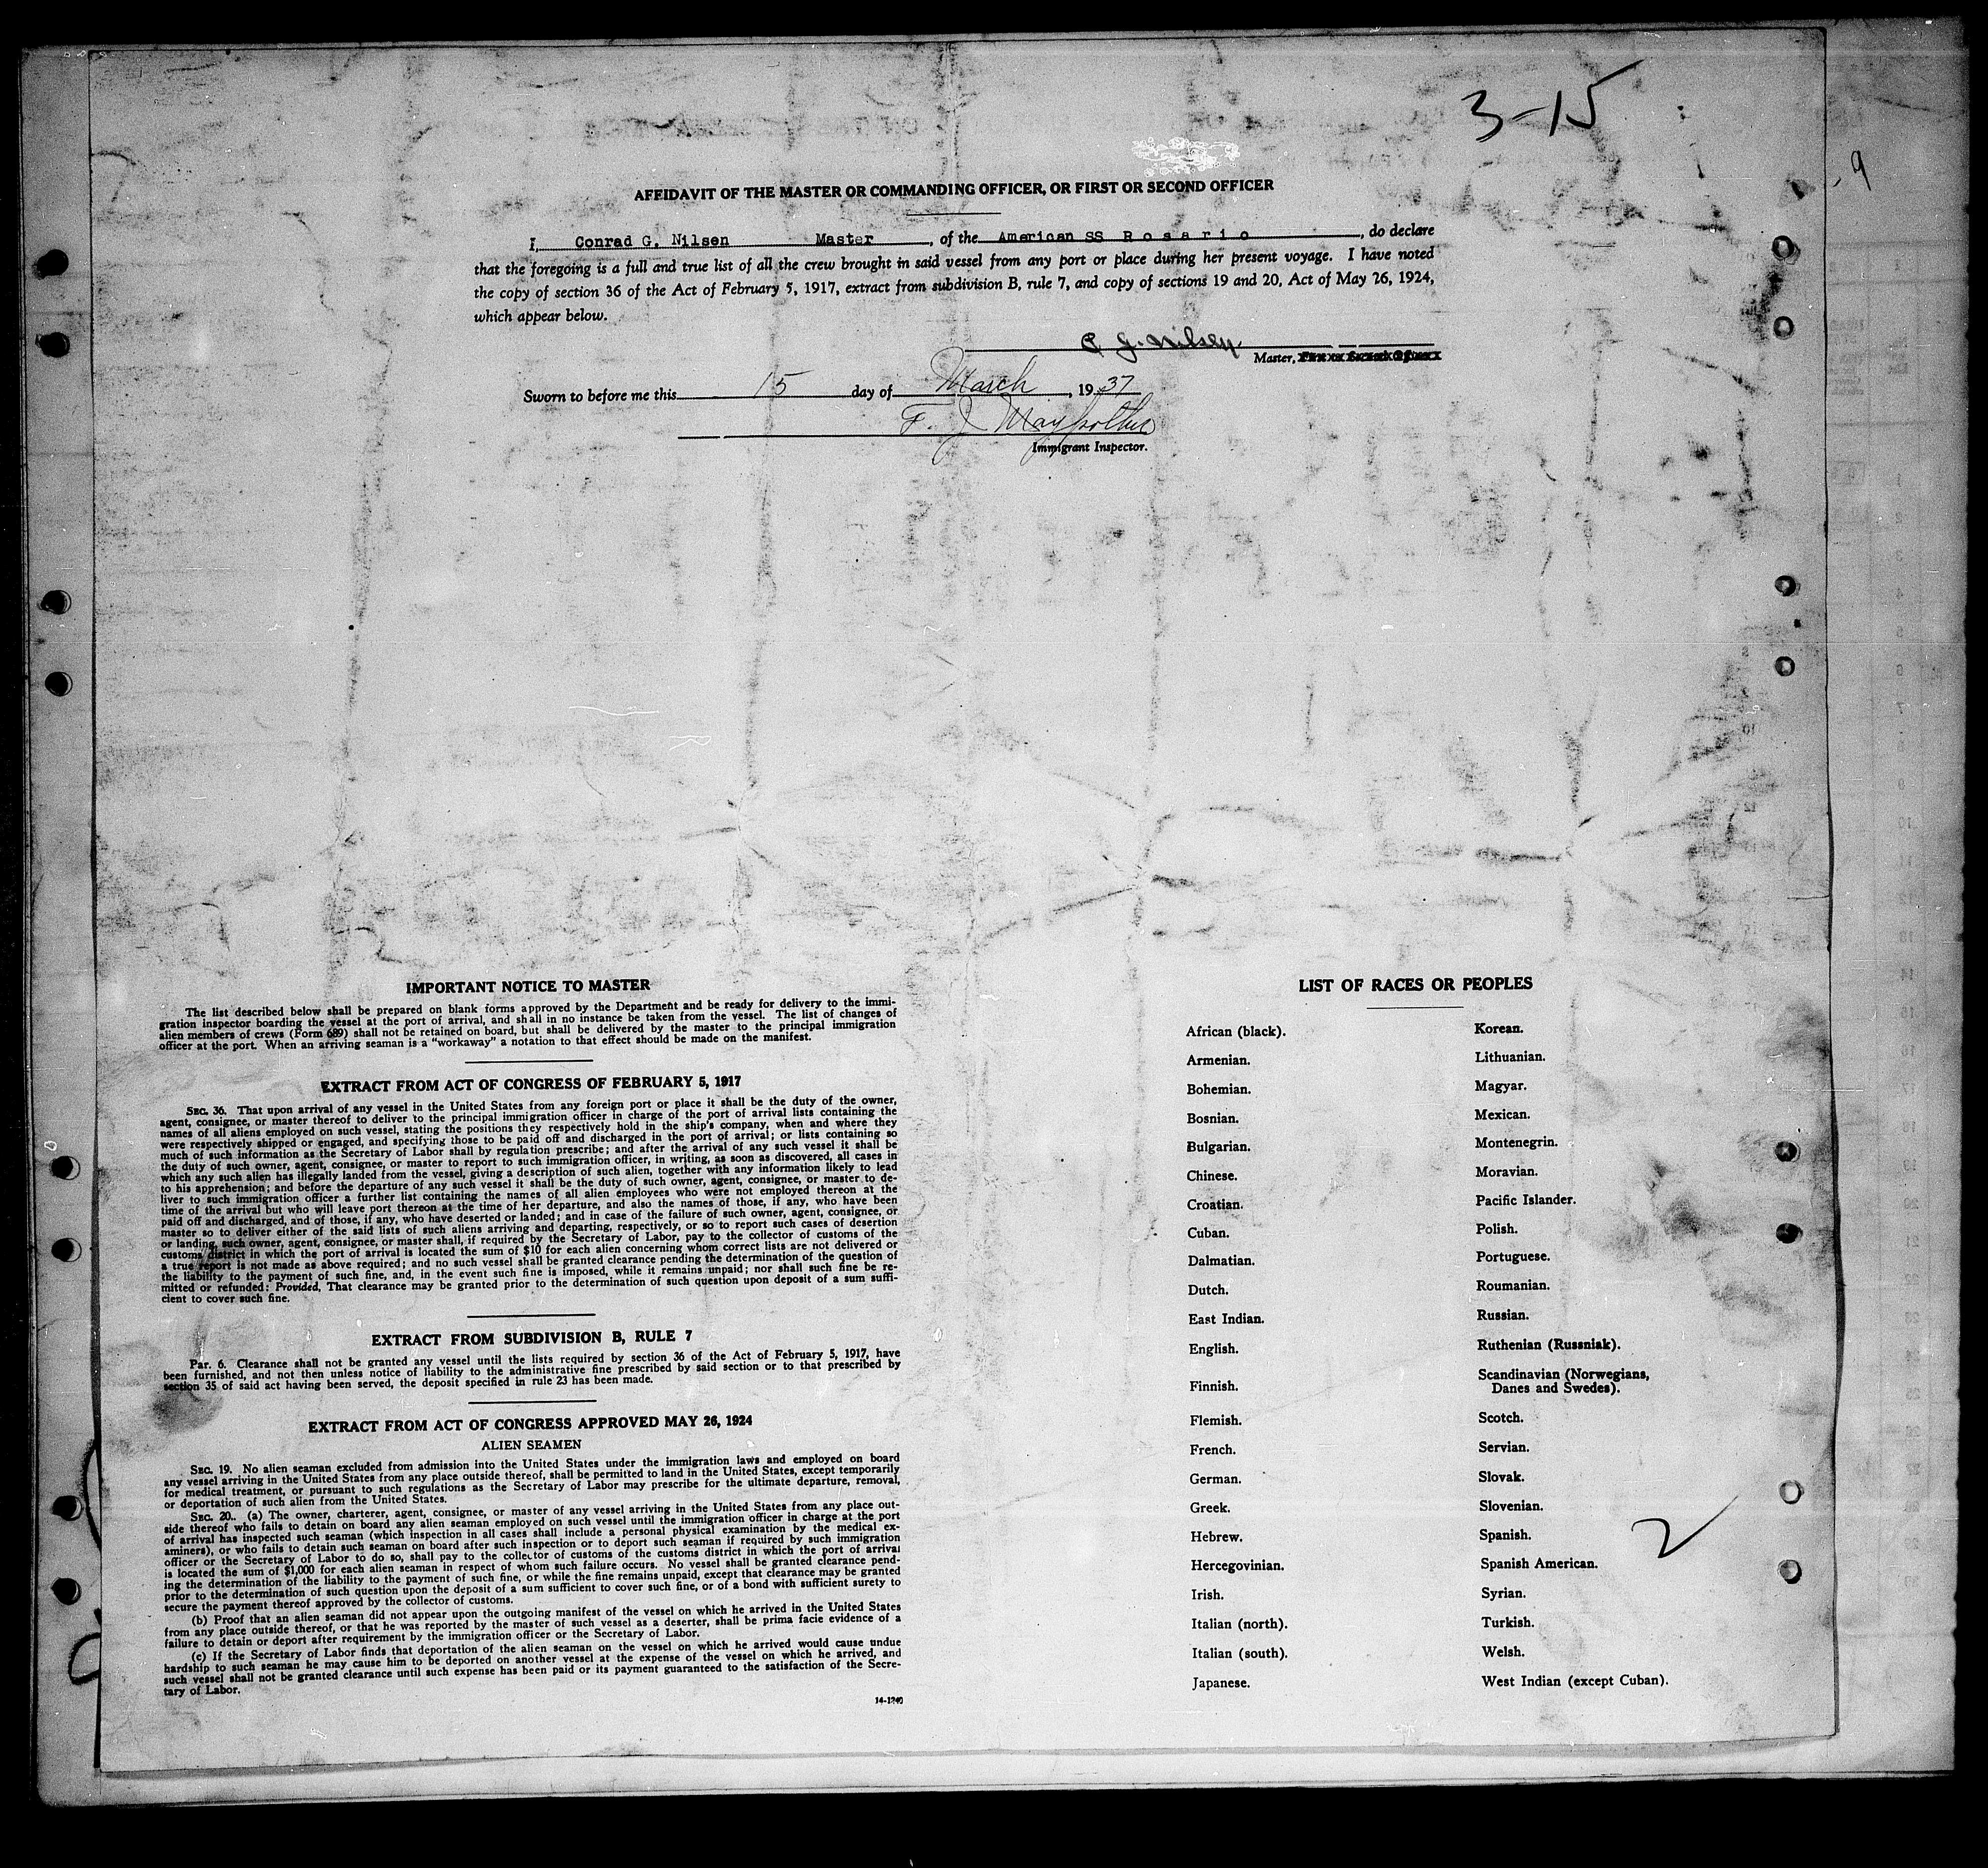 3-15
9
AFFIDAVIT OF THE MASTER OR COMMANDING OFFICER, OR FIRST OR SECOND OFFICER
I, Conrad G. Nilsen Master, of the American SS R o s a r i o, do declare
that the foregoing is a full and true list of all the crew brought in said vessel from any port or place during her present voyage. I have noted
the copy of section 36 of the Act of February 5, 1917, extract from subdivision B, rule 7, and copy of sections 19 and 20, Act of May 26, 1924,
which appear below.
C G. Nilsen
Master,
Sworn to before me this 15 day of March, 1937
F. J.
Immigrant Inspector.
IMPORTANT NOTICE TO MASTER
The list described below shall be prepared on blank forms approved by the Department and be ready for delivery to the immi-
gration inspector boarding the vessel at the port of arrival, and shall in no instance be taken from the vessel. The list of changes of
alien members of crews (Form 689) shall not be retained on board, but shall be delivered by the master to the principal immigration
officer at the port. When an arriving seaman is a "workaway" a notation to that effect should be made on the manifest.
EXTRACT FROM ACT OF CONGRESS OF FEBRUARY 5, 1917
SEC. 36. That upon arrival of any vessel in the United States from any foreign port or place it shall be the duty of the owner,
agent, consignee, or master thereof to deliver to the principal immigration officer in charge of the port of arrival lists containing the
names of all aliens employed on such vessel, stating the positions they respectively hold in the ship's company, when and where they
were respectively shipped or engaged, and specifying those to be paid off and discharged in the port of arrival; or lists containing so
much of such information as the Secretary of Labor shall by regulation prescribe; and after the arrival of any such vessel it shall be
the duty of such owner, agent, consignee, or master to report to such immigration officer, in writing, as soon as discovered, all cases in
which any such alien has illegally landed from the vessel, giving a description of such alien, together with any information likely to lead
to his apprehension; and before the departure of any such vessel it shall be the duty of such owner, agent, consignee, or master to de-
liver to such immigration officer a further list containing the names of all alien employees who were not employed thereon at the
time of the arrival but who will leave port thereon at the time of her departure, and also the names of those, if any, who have been
paid off and discharged, and of those, if any, who have deserted or landed; and in case of the failure of such owner, agent, consignee, or
master so to deliver either of the said lists of such aliens arriving and departing, respectively, or so to report such cases of desertion
or landing, such owner, agent, consignee, or master shall, if required by the Secretary of Labor, pay to the collector of customs of the
customs district in which the port of arrival is located the sum of $10 for each alien concerning whom correct lists are not delivered or
a true report is not made as above required; and no such vessel shall be granted clearance pending the determination of the question of
the liability to the payment of such fine, and, in the event such fine is imposed, while it remains unpaid; nor shall such fine be re-
mitted or refunded: Provided, That clearance may be granted prior to the determination of such question upon deposit of a sum suffi-
cient to cover such fine.
EXTRACT FROM SUBDIVISION B, RULE 7
Par. 6. Clearance shall not be granted any vessel until the lists required by section 36 of the Act of February 5, 1917, have
been furnished, and not then unless notice of liability to the administrative fine prescribed by said section or to that prescribed by
section 35 of said act having been served, the deposit specified in rule 23 has been made.
EXTRACT FROM ACT OF CONGRESS APPROVED MAY 26, 1924
ALIEN SEAMEN
SEC. 19. No alien seaman excluded from admission into the United States under the immigration laws and employed on board
any vessel arriving in the United States from any place outside thereof, shall be permitted to land in the United States, except temporarily
for medical treatment, or pursuant to such regulations as the Secretary of Labor may prescribe for the ultimate departure, removal,
or deportation of such alien from the United States.
SEC. 20.. (a) The owner, charterer, agent, consignee, or master of any vessel arriving in the United States from any place out-
side thereof who fails to detain on board any alien seaman employed on such vessel until the immigration officer in charge at the port
of arrival has inspected such seaman (which inspection in all cases shall include a personal physical examination by the medical ex-
aminers), or who fails to detain such seaman on board after such inspection or to deport such seaman if required by such immigration
officer or the Secretary of Labor to do so, shall pay to the collector of customs of the customs district in which the port of arrival
is located the sum of $1,000 for each alien seaman in respect of whom such failure occurs. No vessel shall be granted clearance pend-
ing the determination of the liability to the payment of such fine, or while the fine remains unpaid, except that clearance may be granted
prior to the determination of such question upon the deposit of a sum sufficient to cover such fine, or of a bond with sufficient surety to
secure the payment thereof approved by the collector of customs.
(b) Proof that an alien seaman did not appear upon the outgoing manifest of the vessel on which he arrived in the United States
from any place outside thereof, or that he was reported by the master of such vessel as a deserter, shall be prima facie evidence of a
failure to detain or deport after requirement by the immigration officer or the Secretary of Labor.
(c) If the Secretary of Labor finds that deportation of the alien seaman on the vessel on which he arrived would cause undue
hardship to such seaman he may cause him to be deported on another vessel at the expense of the vessel on which he arrived, and
such vessel shall not be granted clearance until such expense has been paid or its payment guaranteed to the satisfaction of the Secre-
tary of Labor.
14-1240
LIST OF RACES OR PEOPLES
African (black).
Armenian.
Bohemian.
Bosnian.
Bulgarian.
Chinese.
Croatian.
Cuban.
Dalmatian.
Dutch.
East Indian.
English.
Finnish.
Flemish.
French.
German.
Greek.
Hebrew.
Hercegovinian.
Irish.
Italian (north).
Italian (south).
Japanese.
Korean.
Lithuanian.
Magyar.
Mexican.
Montenegrin.
Moravian.
Pacific Islander.
Polish.
Portuguese.
Roumanian.
Russian.
Ruthenian (Russniak).
Scandinavian (Norwegians,
Danes and Swedes).
Scotch.
Servian.
Slovak.
Slovenian.
Spanish.
Spanish American.
Syrian.
Turkish.
Welsh.
West Indian (except Cuban).
2